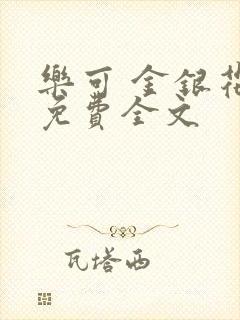 樂可 金銀花
免費全文
瓦塔西